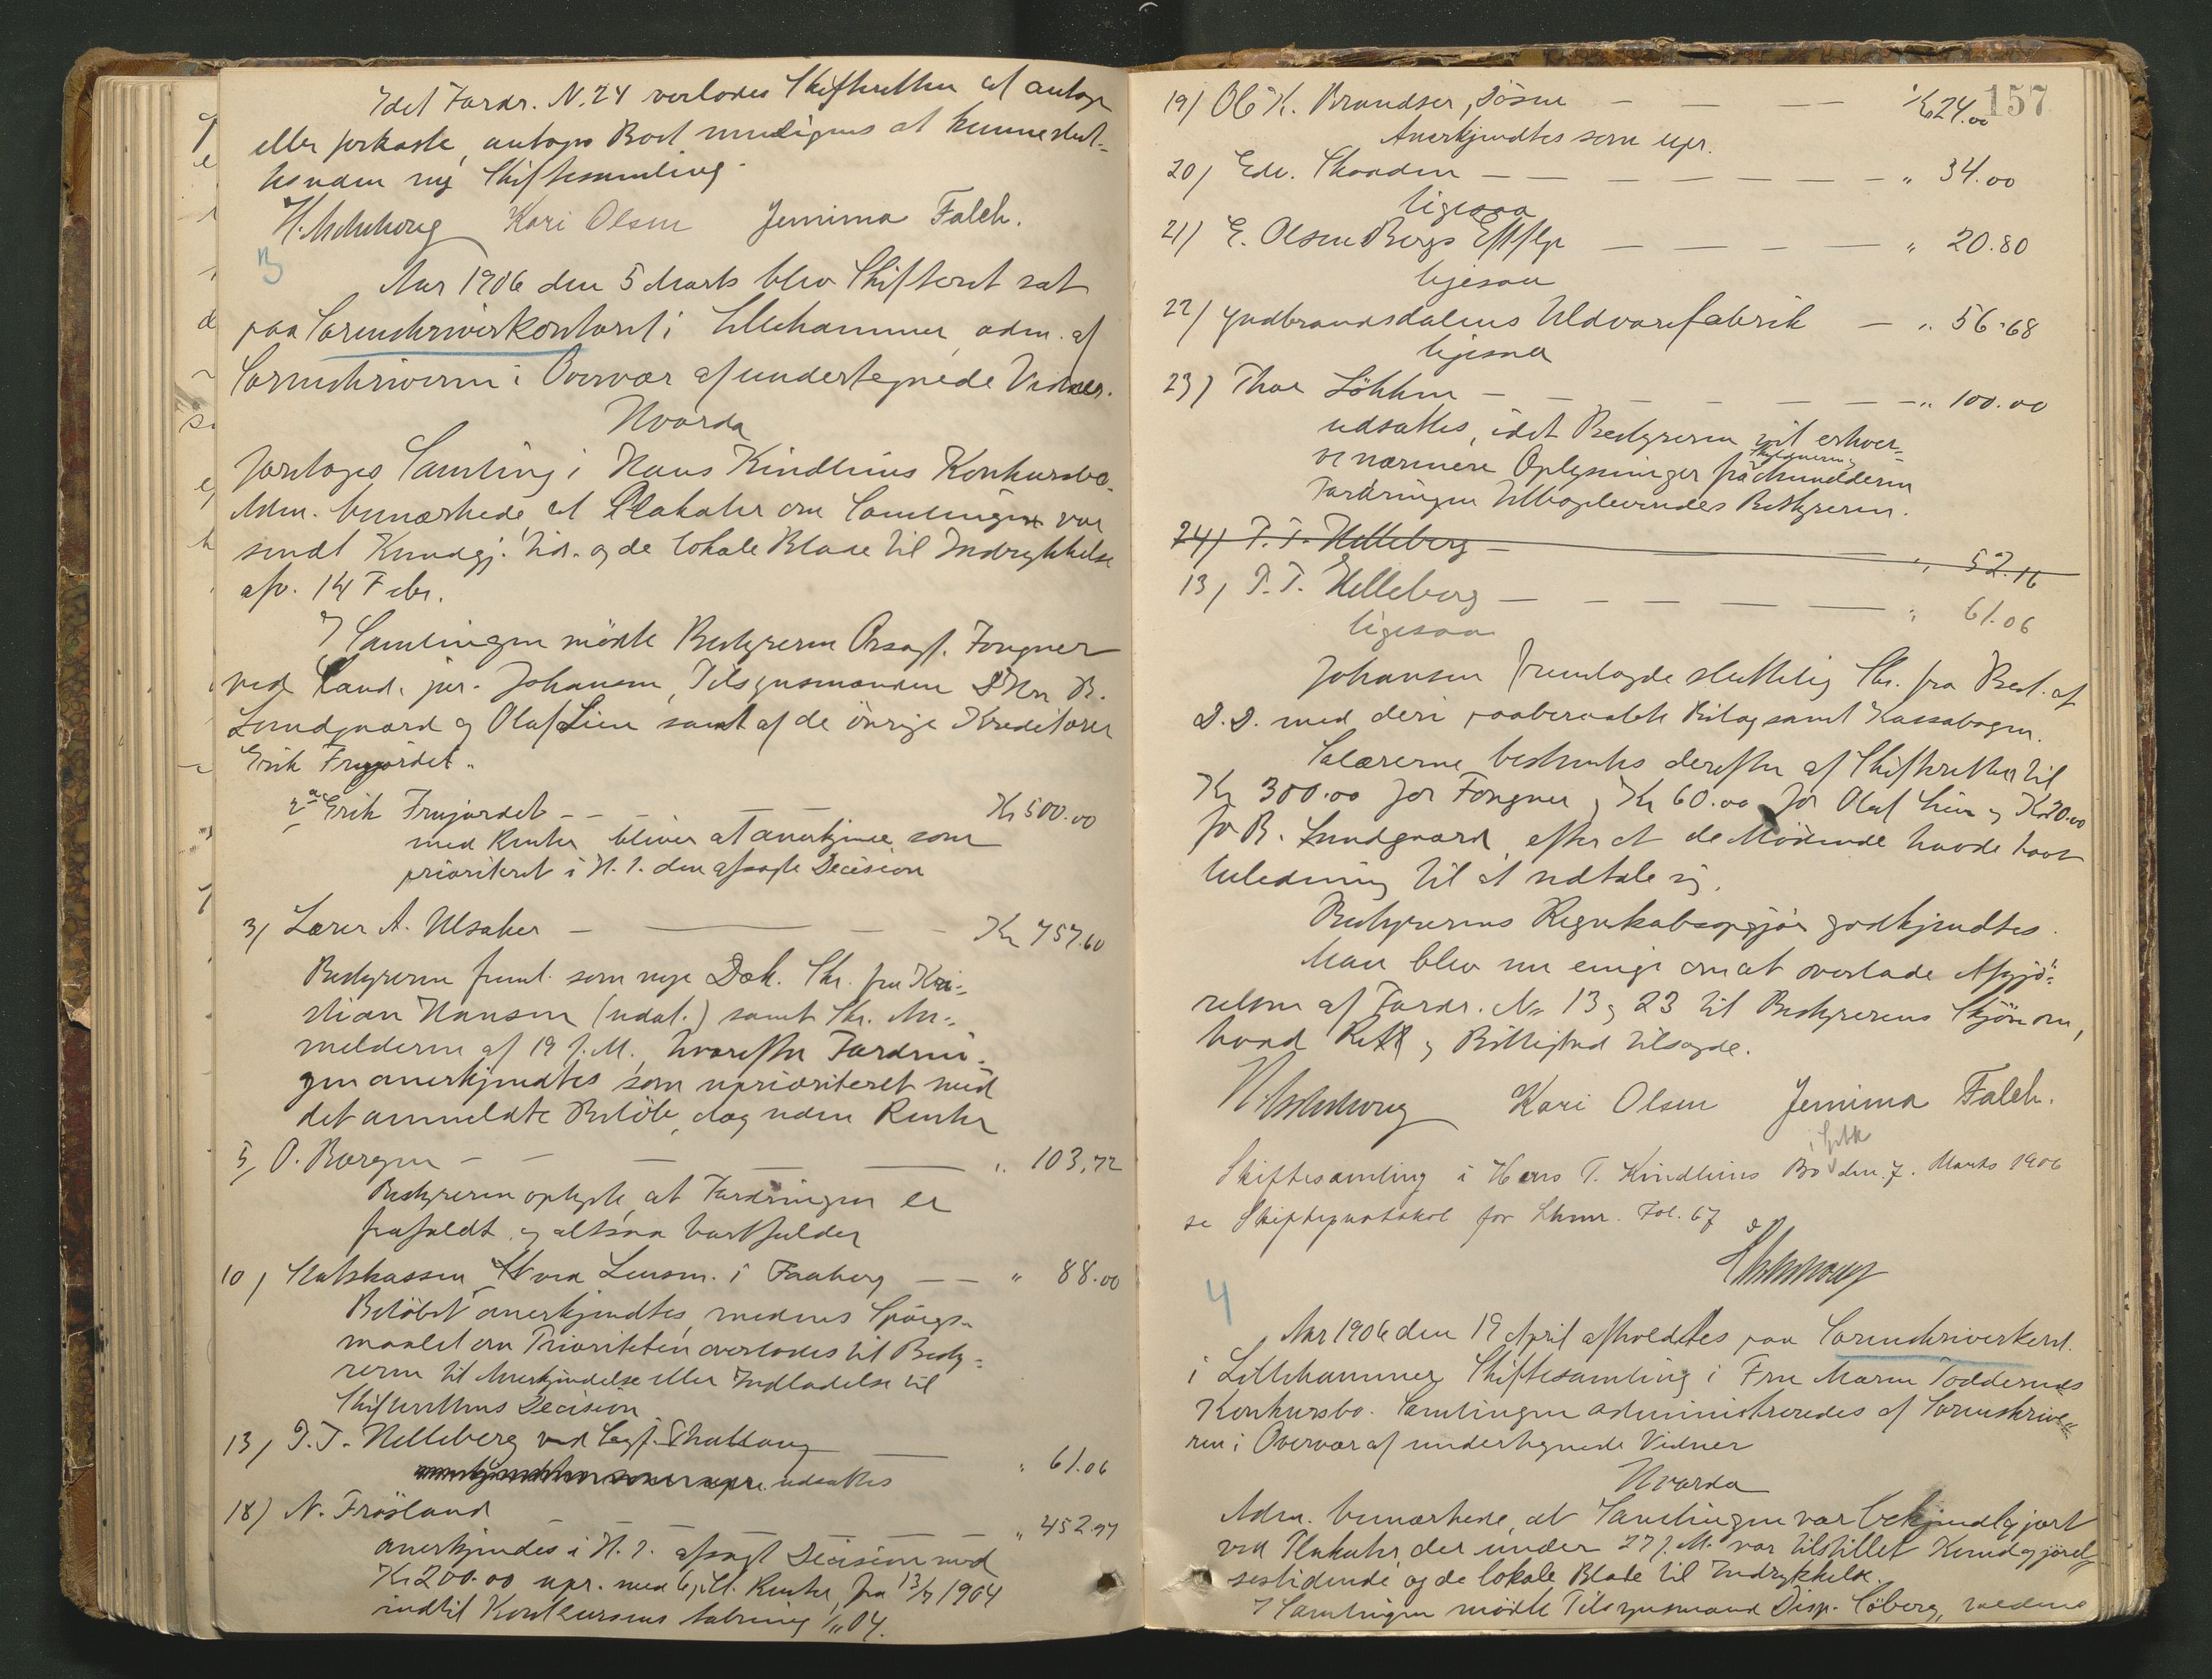 Idet Fordr. N. 24 overlodes Skifteretten at antage
eller forkaste, antoges Boet muligens at kunne slut-
tes uden ny Skiftesamling.
Kari Olsen Jemima Falch.
3
Aar 1906 den 5 Marts blev Skifteret sat
paa Sorenskriverkontoret i Lillehammer, adm. af
Sorenskriveren i Overvær af undertegnede Vidner.
Hvorda
foretoges Samling i Hans Kindlius Konkursbo.
Adm. bemærkede, at Plakater om Samlingen var
sendt Kundgj. tid. og de lokale Blade til Indrykkelse
afv. 14 Febr.
I Samlingen mödte Bestyreren Ovsagf. Fougner
ved Cand. jur. Johansen, Tilsynsmændene DHrr B.
Lundgaard og Olaf Lien samt af de övrige Kreditorer
Erik Frujordet.
2a Erik Frujordet - - - Kr 500.00
med Renter bliver at anerkjende som
prioriteret i H. t. den afsagte Decision
3, Lærer A. Ulsaker - - - Kr 757.60
Bestyreren freml. som nye Dok. Skr. fra Kri-
stian Hansen (udat.) samt Skr. An-
melderen af 19 f. M., hvorefter Fordrin-
gen anerkjendtes som uprioriteret med
det anmeldte Belöb, dog uden Renter
5, O. Borgen - - - " 103,72
Bestyreren oplyste, at Fordringen er
frafaldt og altsaa bortfalder
10, Statskassen ved Lensm. i Faaberg - - " 88.00
Belöbet anerkjendtes, medens Spörgs-
maalet om Prioriteten overlodes til Besty-
reren til Anerkjendelse eller Indladelse til
Skifterettens Decision
13, P. T. Helleberg ved - " 61.06
anerkjendtes som upr. udsattes
18) N. Fröisland - - - " 452.97
anerkjendes i H. t. afsagt Decision med
Kr 200.00 upr. med 6 pCt. Renter fra 13/7 1904
indtil Konkursens Aabning 1/11 04.
157
19) Ole K. Brandser, Jösne - - - Kr 24.00
Anerkjendtes som upr.
20) Edv. Skaaden - - - " 34.00
ligesaa
21) E. Olsen Bergs Eftflg - - - " 20.80
ligesaa
22) Gudbrandsdalens Uldvarefabrik - " 56.68
ligesaa
23) Thor Lökken - - - " 100.00
udsattes, idet Bestyreren vil erhver-
ve nærmere Oplysninger fra Anmelderen
Fordringen tilbageleveredes Bestyreren.
24) P. T. Helleberg - " 52.16
13, P. T. Helleberg - - - " 61.06
ligesaa
Johansen fremlagde sluttelig Skr. fra Best. af
D. D. med deri paaberaabte Bilag samt Kassabogen.
Salærerne bestemtes derefter af Skifteretten til
Kr 300.00 for Fougner, Kr 60.00 for Olaf Lien og Kr 20.00
for B. Lundgaard, efter at de Mödende havde havt
Anledning til at udtale sig.
Bestyrerens Regnskabsopgjör godkjendtes.
Man blev nu enige om at overlade Afgjö-
relsen af Fordr. No 13 og 23 til Bestyrerens Skjön om,
hvad Rett og Billighed tilsagde.
Kari Olsen Jemima Falch.
Skiftesamling i Hans T. Kindlius Bo den 7. Marts 1906
se Skifteprotokol for Lhmr. Fol. 67
4
Aar 1906 den 19 April afholdtes paa Sorenskriverkont.
i Lillehammer Skiftesamling i Fru Maren Toddernes
Konkursbo. Samlingen administreredes af Sorenskrive-
ren i Overvær af undertegnede Vidner
Hvorda
Adm. bemærkede, at Samlingen var bekjendtgjort
ved Plakater, der under 27 f. M. var tilstillet Kundgjörel-
sestidende og de lokale Blade til Indrykkelse.
I Samlingen mödte Tilsynsmand Disp. Söberg,